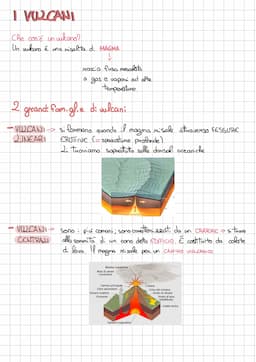 I VULCANI
Che cos'è un vulcano?
Un vulcano è una risalita di MAGMA
↓
roccia fusa mescolata
a gas e vapori ad alte
temperature
2 grandi famiglie di vulcani
- VULCANI LINEARI → si formano quando il magma risale attraverso FESSURE
CROSTALI (= spaccature profonde)
Li troviamo soprattutto nelle dorsali oceaniche
- VULCANI CENTRALI → sono i più comuni, sono caratterizzati da un CRATERE → si trova
alla sommità di un cono detto EDIFICIO. È costituito da colate
di lava. Il magma risale per un CAMINO VULCANICO